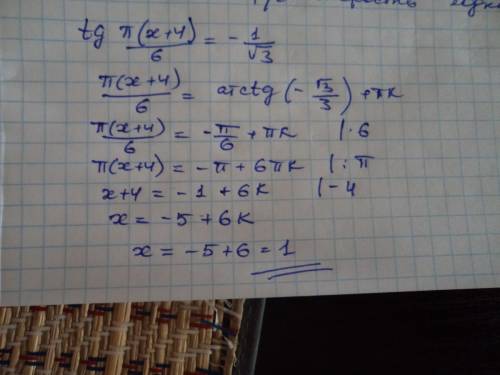 tg π(x+4)/6 = - 1/√3
π(x+4)/6 = arctg (- √3/3) + πk
π(x+4)/6 = - π/6 + πk |·6
π(x+4) = -π + 6πk |:π
x+4 = -1 + 6k |-4
x = -5 + 6k
x = -5+6 = 1